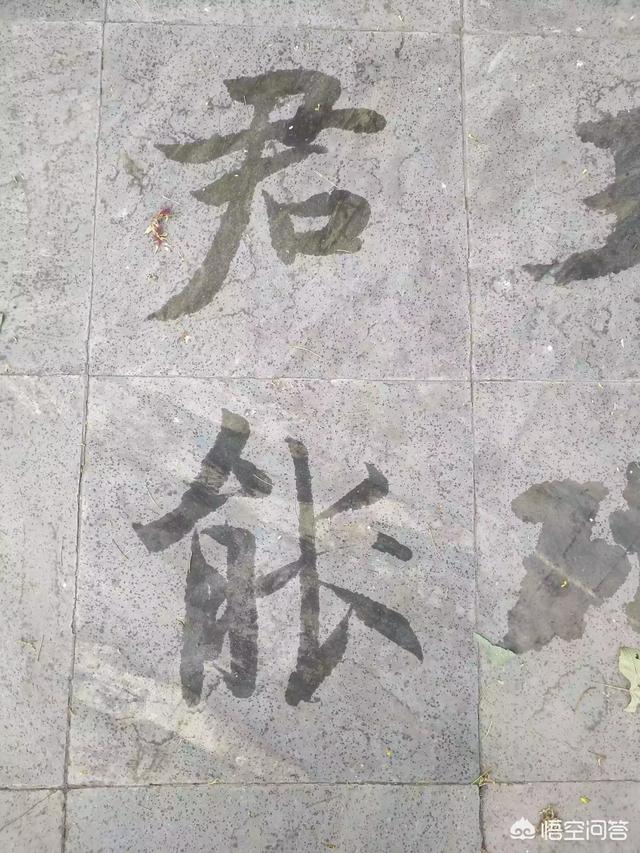 君
能
悟空问答